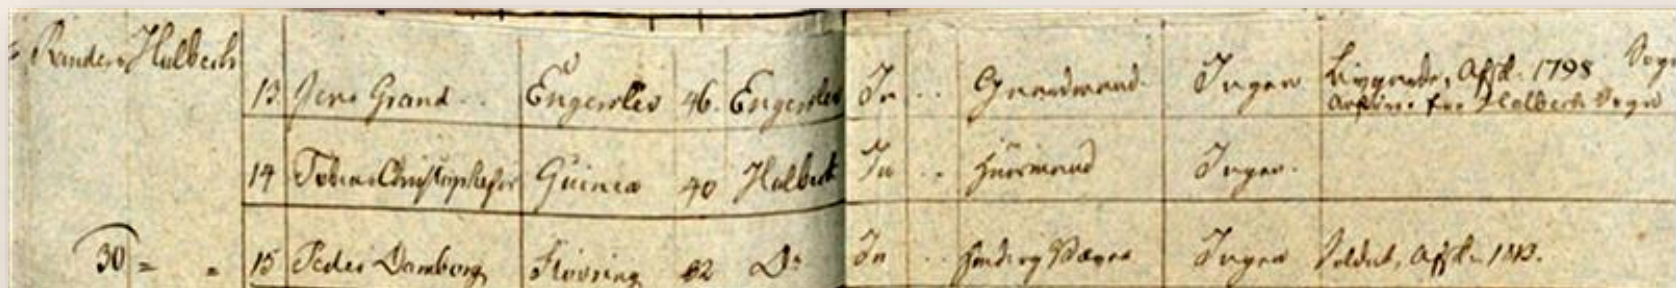 Randers Halbech
13 Jens Grand Engerslev 46. Engerslev Ja Gaardmand. Ingen Afsk. 1798 Sogn
for Halbech Sogn
14 Tobias Christophersen Guinea 40 Halbek Ja Huusmand Ingen.
30 = = 15 Peder Damborg Støvring 62 Do Ja Ingen Soldat, Afsk. 1813.